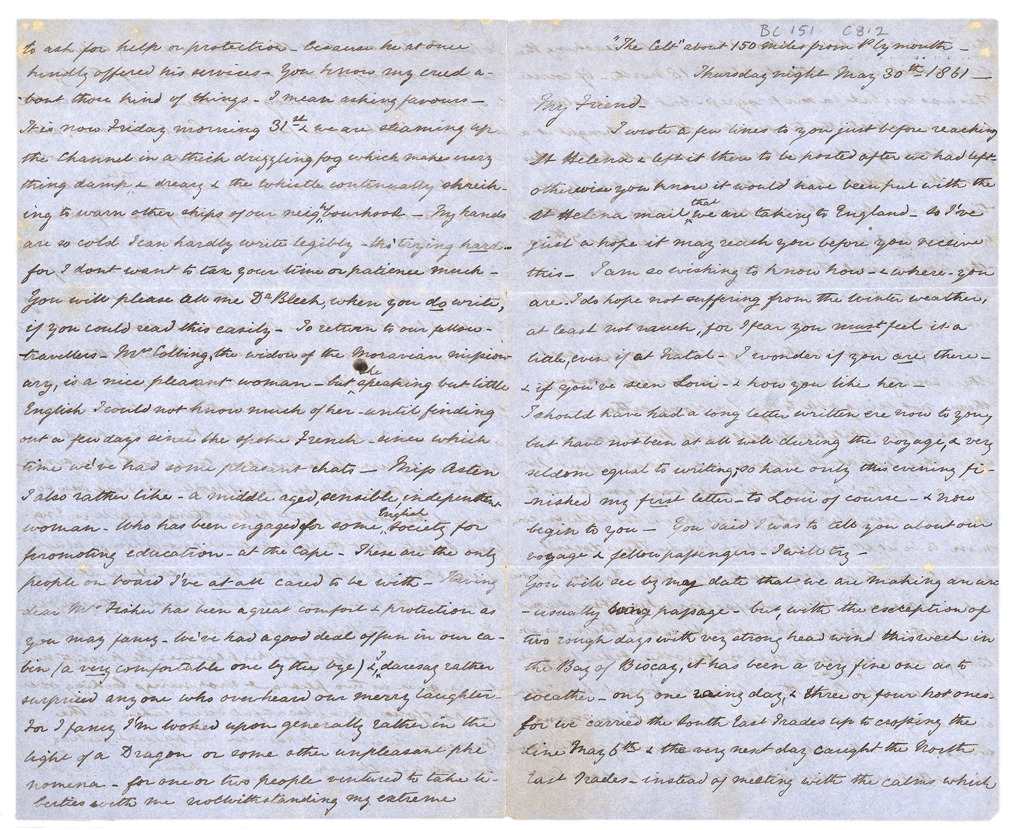 BC 151 C8.12
"The Celt" about 150 miles from Plymouth –
Thursday night May 30th 1861 –
My Friend –
I wrote a few lines to you just before reaching
St Helena & left it there to be posted after we had left
otherwise you know it would have been put with the
St Helena mail that we are taking to England – so I've
just a hope it may reach you before you receive
this – I am so wishing to know how – & where – you
are. I do hope not suffering from the winter weather,
at least not much, for I fear you must feel it a
little, even if at Natal – I wonder if you are there –
& if you've seen Loui – & how you like her –
I should have had a long letter written ere now to you,
but have not been at all well during the voyage, & very
seldom equal to writing, so have only this evening fi-
nished my first letter – to Loui of course – & now
begin to you – You said I was to tell you about our
voyage & fellow passengers – I will try –
You will see by my date that we are making an un-
-usually long passage – but, with the exception of
two rough days with very strong head wind this week in
the Bay of Biscay, it has been a very fine one as to
weather – only one rainy day, & three or four hot ones
for we carried the South East Trades up to crossing the
Line May 6th & the very next day caught the North
East Trades – instead of meeting with the calms which
to ask for help or protection – because he at once
kindly offered his services – You know my creed a-
bout those kind of things – I mean asking favours –
It is now Friday morning 31st & we are steaming up
the Channel in a thick drizzling fog which makes every
thing damp & dreary & the whistle continually shriek-
ing to warn other ships of our neighbourhood – My hands
are so cold I can hardly write legibly – tho' trying hard –
for I dont want to tax your time or patience much –
You will please tell me Dr Bleek, when you do write,
if you could read this easily – To return to our fellow-
-travellers – Mrs Colbing, the widow of the Moravian mission-
ary, is a nice pleasant woman – but she speaking but little
English I could not know much of her – until finding
out a few days since she spoke French – since which
time we've had some pleasant chats – Miss Asten
I also rather like – a middle aged, sensible, independent
woman – who has been engaged for some English Society for
promoting education – at the Cape – These are the only
people on board I've at all cared to be with – Having
dear Mrs Fisher has been a great comfort & protection as
you may fancy – we've had a good deal of fun in our ca-
bin (a very comfortable one by the bye) & I daresay rather
surprised any one who overheard our merry laughter
for I fancy I'm looked upon generally rather in the
light of a Dragon or some other unpleasant phe
nomena – for one or two people ventured to take li-
berties with me notwithstanding my extreme